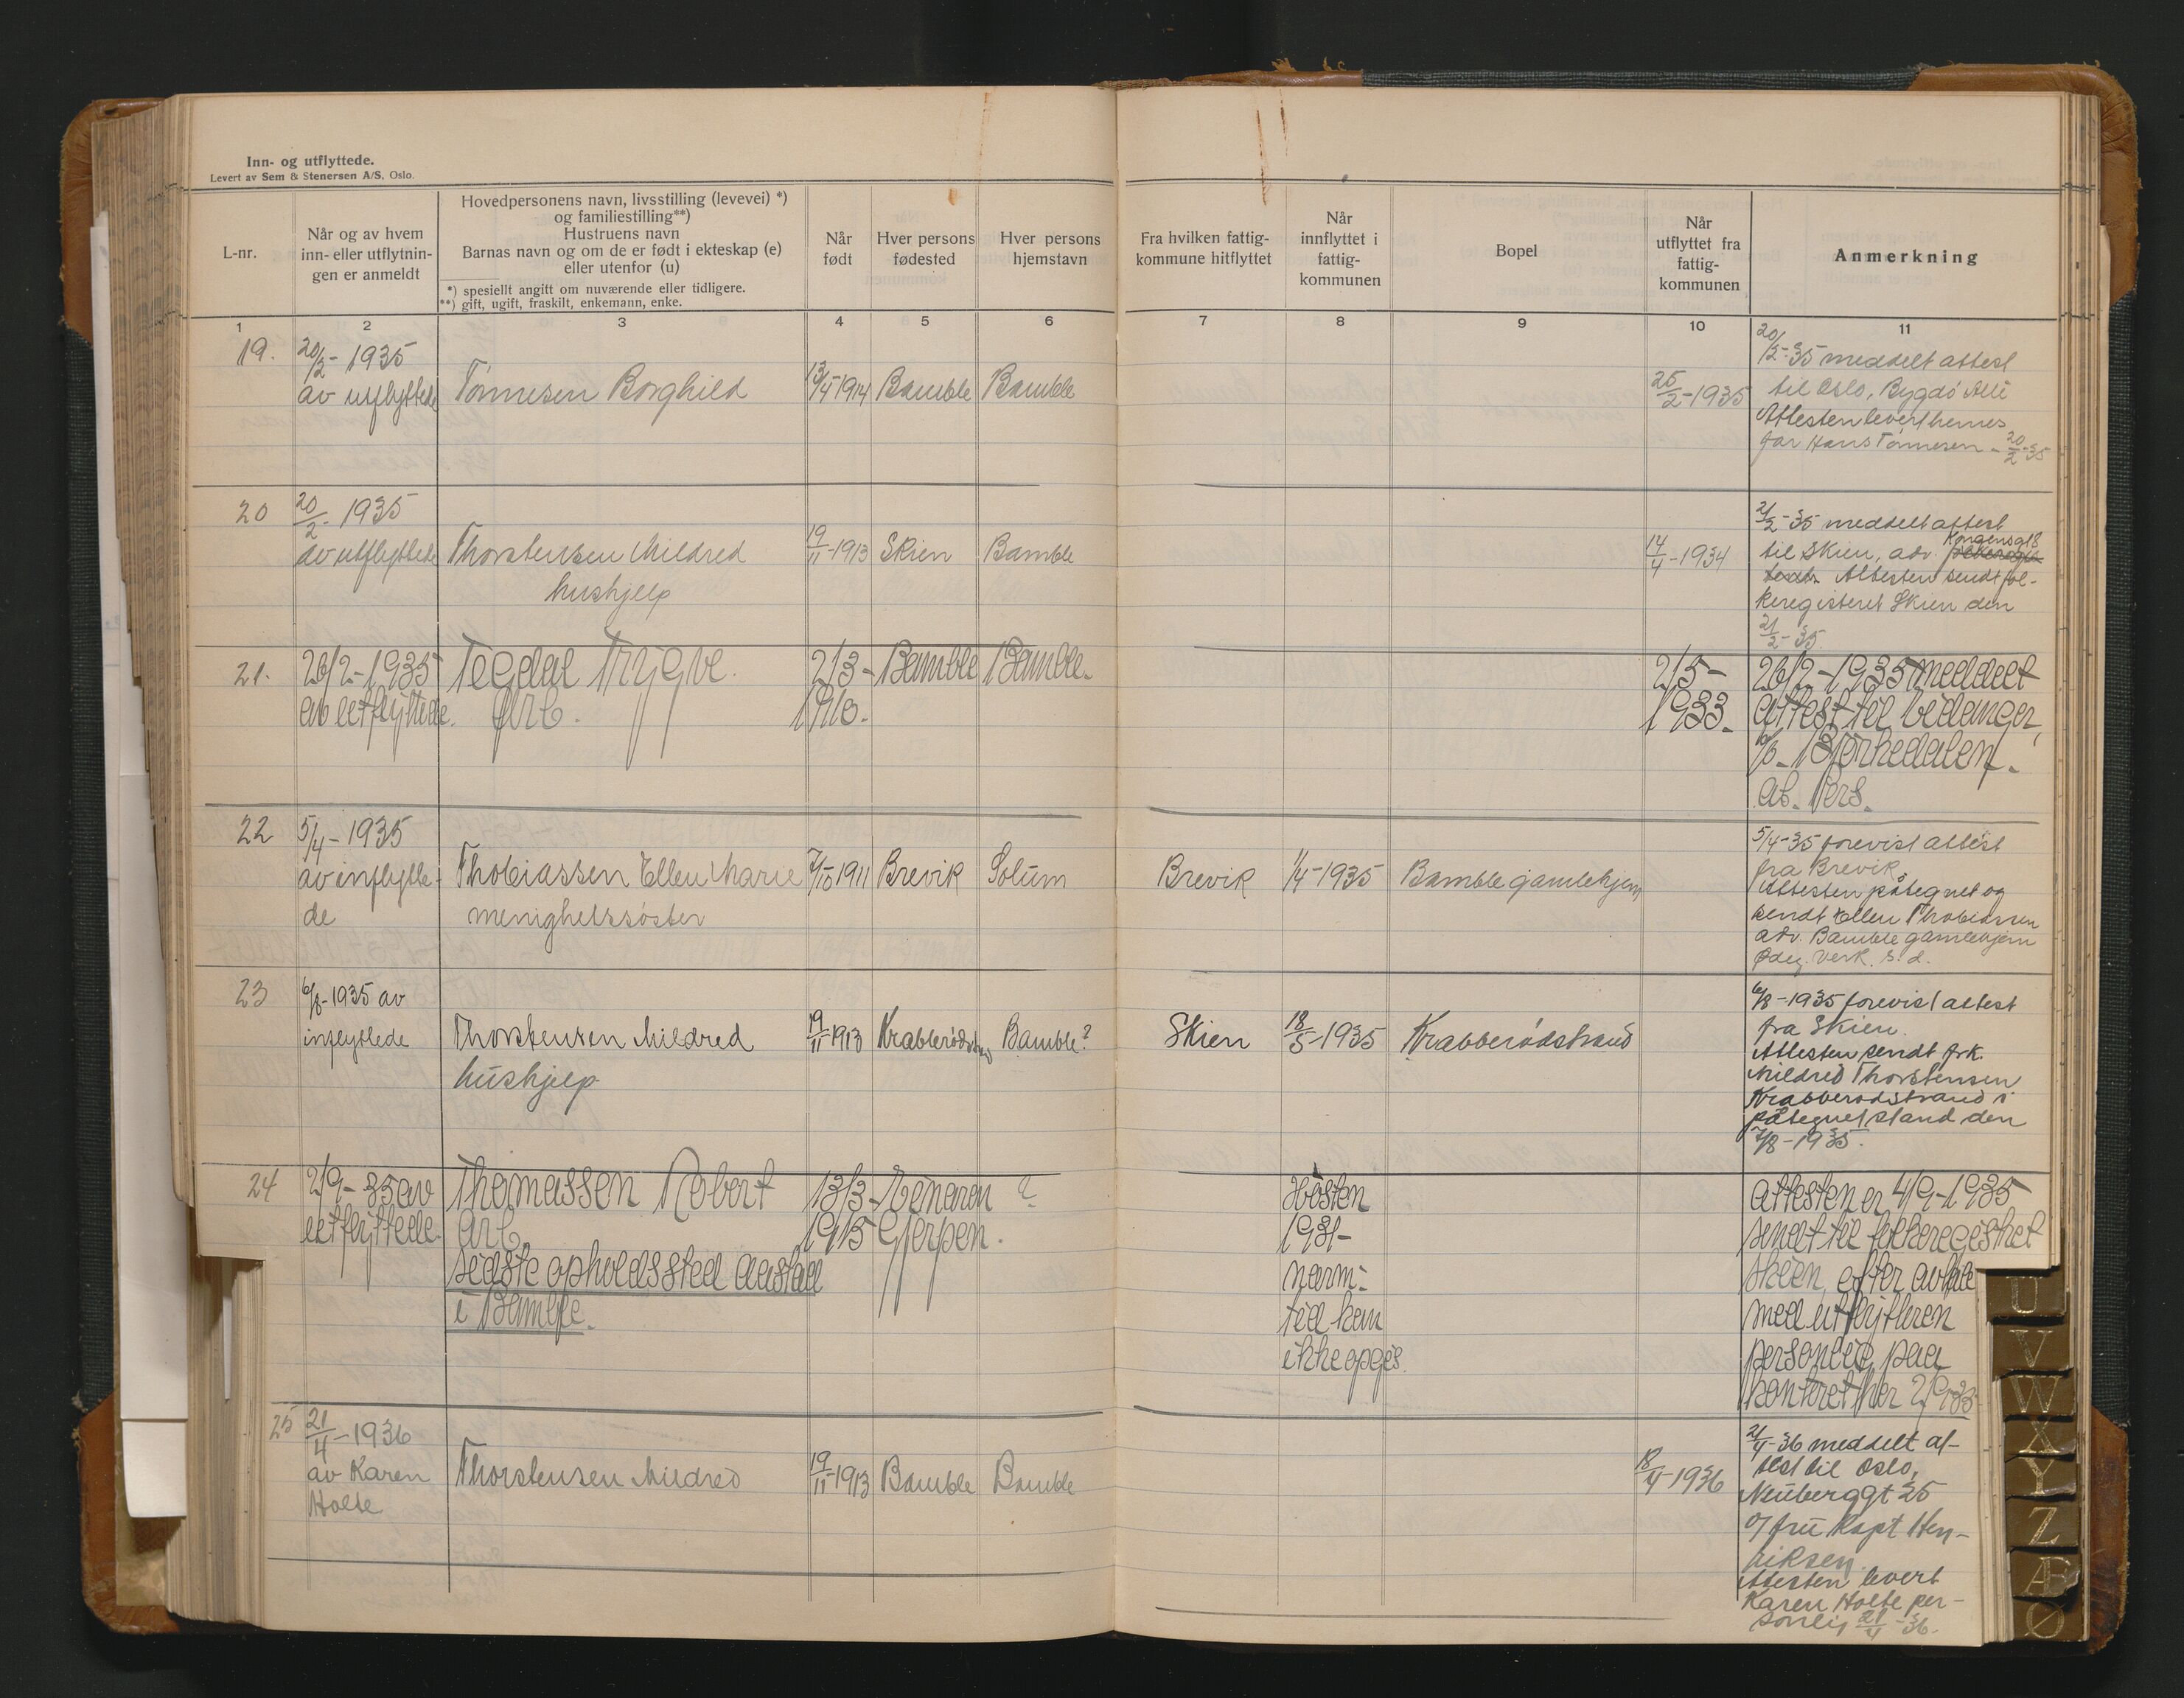 Inn- og utflyttede.
Levert av Sem & Stenersen A/S, Oslo.
L-nr.
Når og av hvem
inn- eller utflytnin-
gen er anmeldt
Hovedpersonens navn, livsstilling (levevei) *)
og familiestilling**)
Hustruens navn
Barnas navn og om de er født i ekteskap (e)
eller utenfor (u)
*) spesiellt angitt om nuværende eller tidligere.
**) gift, ugift, fraskilt, enkemann, enke.
Når
født
Hver persons
fødested
Hver persons
hjemstavn
Fra hvilken fattig-
kommune hitflyttet
Når
innflyttet i
fattig-
kommunen
Bopel
Når
utflyttet fra
fattig-
kommunen
Anmerkning
1 2 3 4 5 6 7 8 9 10 11
19.
20/2- 1935
av utflyttede
Tønnesen Borghild
13/4-1914
Bamble
Bamble
25/2-1935
20/2-35 meddelt attest
til Oslo, Bygdö Allé
Attesten levert hennes
far Hans Tönnesen - 20/2-35
20
20/2- 1935
av utflyttede
Thorstensen Mildred
hushjelp
19/11-1913
Skien
Bamble
14/4-1934
21/2-35 meddelt attest
Kongensgt 8
til Skien, adr.
Attesten sendt fol-
keregisteret Skien den
21/2-35
21.
26/2-1935
av utflyttede.
Tegdal Trygve.
Arb.
2/3-
1910.
Bamble
Bamble.
2/5-
1933.
26/2-1935 meddelt
attest til Eidanger,
Bjørkedalen.
ab. Pers.
22
5/4-1935
av innflytte-
de
Thobiassen Ellen Marie
menighetssöster
7/10 1911
Brevik
Solum
Brevik
1/4-1935
Bamble gamlehjem
5/4-35 forevist attest
fra Brevik.
Attesten påtegnet og
sendt Ellen Thobiassen
adr. Bamble gamlehjem
Ødeg. Verk. s. d.
23
6/8-1935 av
innflyttede
Thorstensen Mildred
hushjelp
19/11-1913
Krabberødstrand
Bamble?
Skien
18/5-1935
Krabberödstrand
6/8-1935 forevist attest
fra Skien.
Attesten sendt frk.
Mildred Thorstensen
Krabberødstrand i
påtegnet stand den
7/8-1935.
24
2/9-35 av
utflyttede
Thomassen Robert
arb.
sidste opholdssted Aastad
i Bamble.
13/3-
1915
Menaren
Gjerpen.
?
Høsten
1931-
nærm-
tid kan
ikke opgis.
Attesten er 4/9-1935
sendt til folkeregistret
Skien, efter avtale
med utflytteren
personlig paa
kontoret her 2/9-35
25
21/4-1936
av Karen
Holte
Thorstensen Mildred
19/11-1913
Bamble
Bamble
18/4-1936
21/4-36 meddelt at-
test til Oslo,
Neuberggt 25
o/ fru Kapt Hen-
riksen.
Attesten levert
Karen Holte per-
sonlig 21/4-36.
U
V
W
X
Y
Z
Æ
Ø